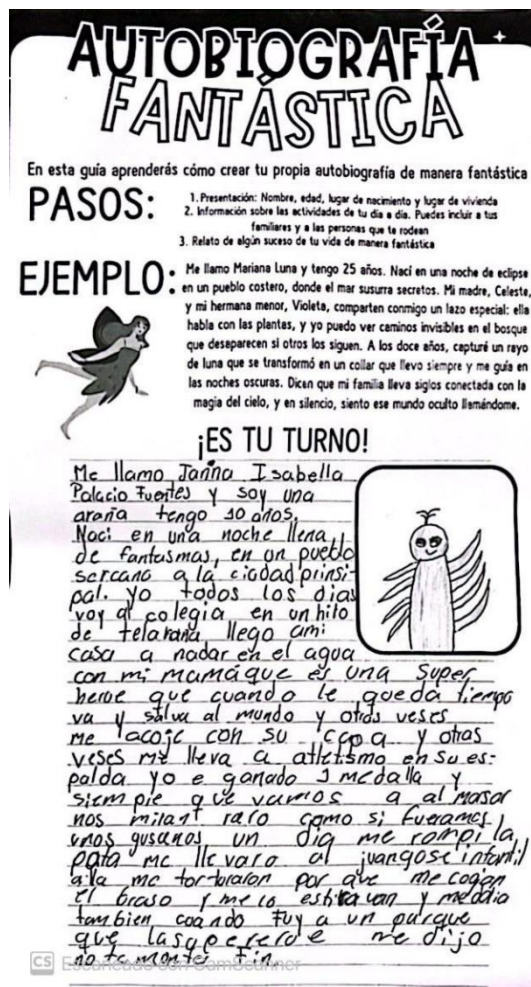 AUTOBIOGRAFÍA
FANTÁSTICA
En esta guía aprenderás cómo crear tu propia autobiografía de manera fantástica
PASOS:
1. Presentación: Nombre, edad, lugar de nacimiento y lugar de vivienda
2. Información sobre las actividades de tu día a día. Puedes incluir a tus
familiares y a las personas que te rodean
3. Relato de algún suceso de tu vida de manera fantástica
EJEMPLO:
Me llamo Mariana Luna y tengo 25 años. Nací en una noche de eclipse
en un pueblo costero, donde el mar susurra secretos. Mi madre, Celeste,
y mi hermana menor, Violeta, comparten conmigo un lazo especial: ella
habla con las plantas, y yo puedo ver caminos invisibles en el bosque
que desaparecen si otros los siguen. A los doce años, capturé un rayo
de luna que se transformó en un collar que llevo siempre y me guía en
las noches oscuras. Dicen que mi familia lleva siglos conectada con la
magia del cielo, y en silencio, siento ese mundo oculto llamándome.
¡ES TU TURNO!
Me llamo Isabella
Palacio Fuertes y soy una
araña tengo 10 años.
Naci en una noche llena
de fantasmas, en un pueblo
sercano a la ciodad prinsi-
pal. yo todos los dias
voy al colegia en un hilo
de telaraña llego ami
casa a nadar en el agua
con mi mamá que es una super
heroe que cuando le queda tiempo
va y salva al mundo y otras veses
me acoje con su capa y otras
veses me lleva a atletismo en su es-
palda yo e ganado 1 medalla y
siempre que vamos a
nos miran raro como si fueramos
unos gusanos, un dia me rompi la
pata me llevaro al infantil
alla me torturaron por que me cogian
el braso y me lo estiravan y me dolio
tambien coando fuy a un parque
que me dijo
no te montes fin.
CS Escaneado con CamScanner